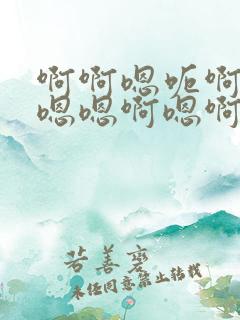 啊啊嗯呃啊
嗯嗯啊嗯啊
若善著
未经同意禁止转载